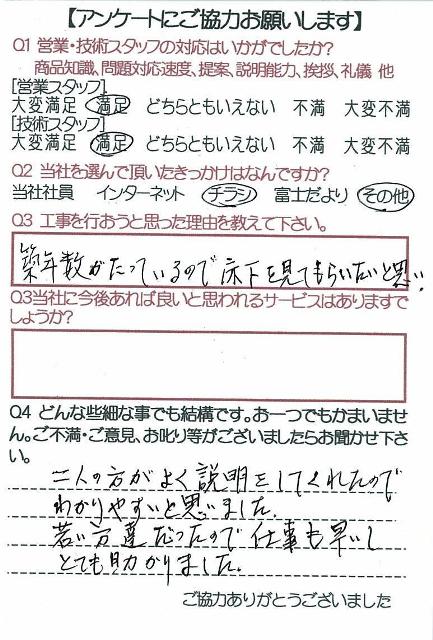 【アンケートにご協力お願いします】
Q1 営業・技術スタッフの対応はいかがでしたか?
商品知識、問題対応速度、提案、説明能力、挨拶、礼儀 他
[営業スタッフ]
大変満足 満足 どちらともいえない 不満 大変不満
[技術スタッフ]
大変満足 満足 どちらともいえない 不満 大変不満
Q2 当社を選んで頂いたきっかけはなんですか?
当社社員 インターネット チラシ 富士だより その他
Q3 工事を行おうと思った理由を教えて下さい。
築年数がたっているので床下を見てもらいたいと思い
Q3当社に今後あれば良いと思われるサービスはありますで
しょうか?
Q4 どんな些細な事でも結構です。お一つでもかまいませ
ん。ご不満・ご意見、お叱り等がございましたらお聞かせ下さ
い。
二人の方がよく説明をしてくれたので
わかりやすいと思いました。
若い方達だったので仕事も早いし
とても助かりました。
ご協力ありがとうございました